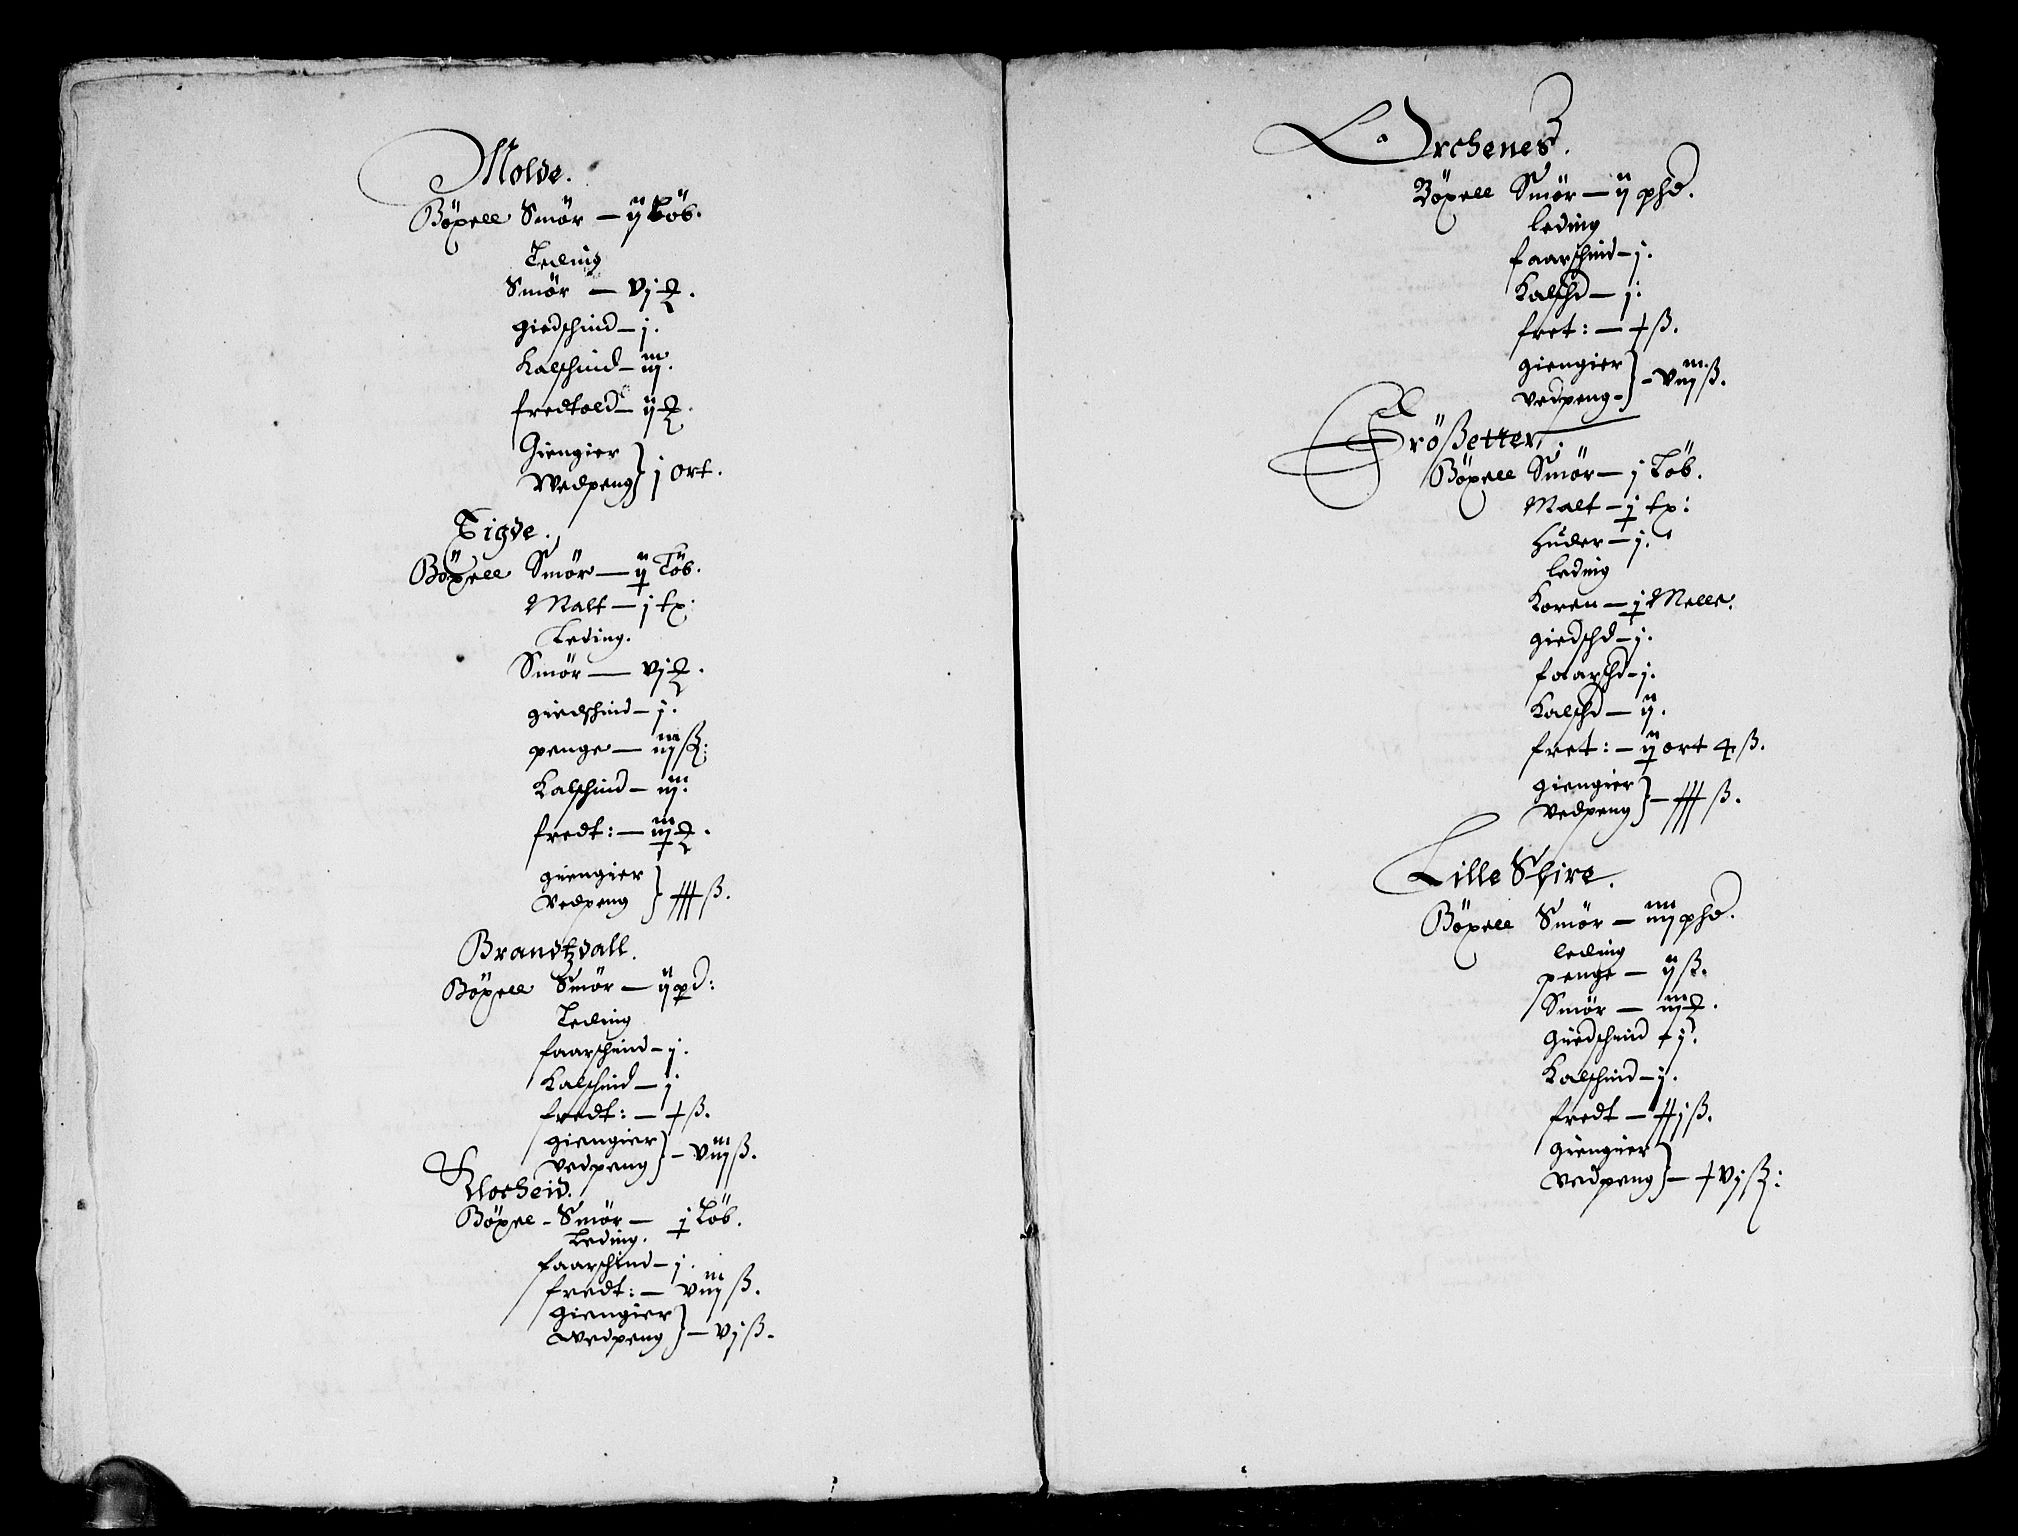 Molde.
Böxell Smör — ij Löb.
Leding
Smör — vj ℔.
giedschind — j.
Kalschind — iij.
fredtold — ij ℔.
Giengier
Wedpeng } j ort.
Tigde.
Böxell Smör — ij Löb.
Malt — j tp:
Leding.
Smör — vj ℔.
giedschind — j.
penge — iiij ß:
Kalschind — iij.
fredt: — iij ℔.
giengier
vedpeng } ß.
Brandtzdall.
Böxell Smör — ij pd:
Leding
faarschind — j.
Kalschind — j
fredt: — + ß.
giengier
vedpeng } — viij ß.
Klocheid.
Böxel - Smör — j Löb.
Leding.
faarschind — j.
fredt: — viij ß.
giengier
wedpeng } — vj ß.
Orchenes.
Böxell Smör — ij phd.
leding
faarschind — j.
Kalschd — j.
fret: — + ß.
giengier
vedpeng } — viij ß.
Frößetter.
Böxell Smör — j Löb.
Malt — j tp:
Huder — j.
leding
Koren — j Melle.
giedschd — j.
faarschd — j.
Kalschd — ij.
fret: — ij ort 4 ß.
giengier
vedpeng } — ß.
Lille Schire.
Böxell Smör — iiij phd.
leding
penge — ij ß.
Smör — iij ℔.
giedschind — j.
Kalschind — j.
fredt — ß.
giengier
vedpeng } — + vj ß: